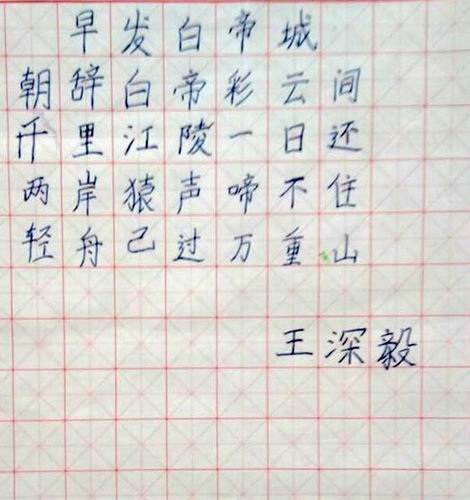 早发白帝城
朝辞白帝彩云间
千里江陵一日还
两岸猿声啼不住
轻舟己过万重山
王深毅